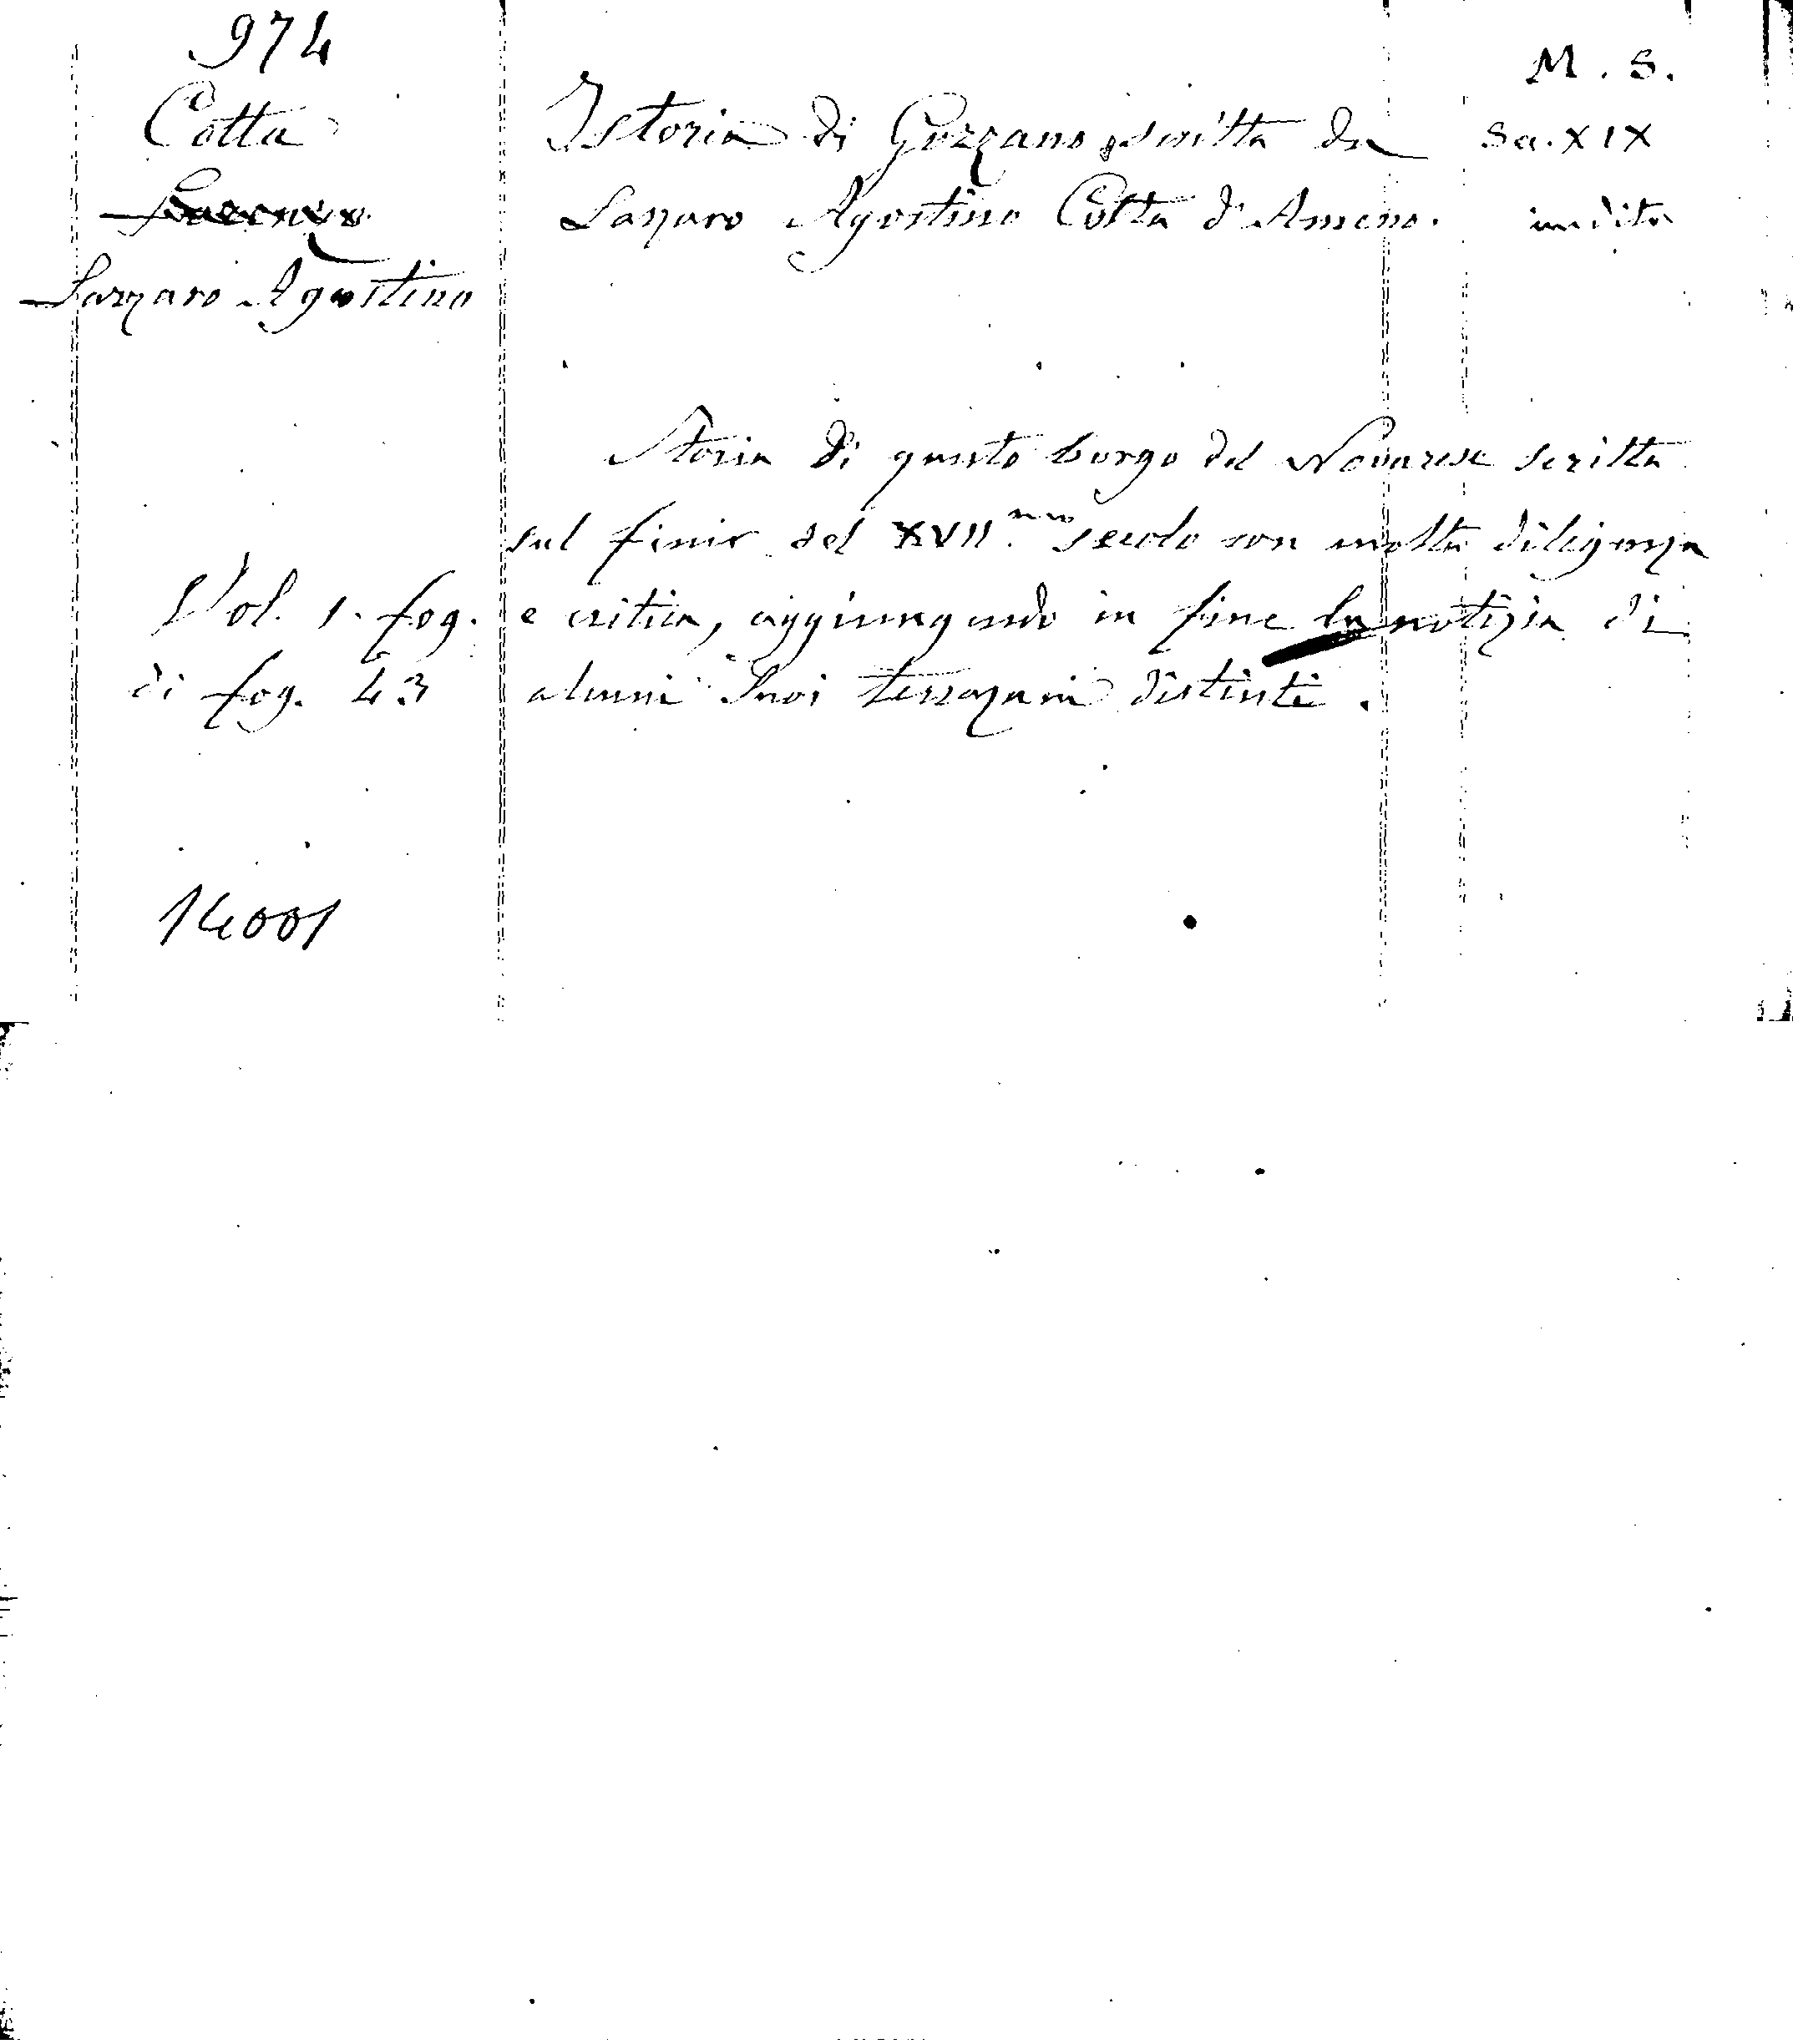 974
M. S.
Cotta
Istoria di Gozzano, scritta da
Sec. XIX
Lazzaro Agostino Cotta d'Ameno.
inedita
Lazzaro Agostino
Storia di questo borgo del Novarese scritta
sul finir del XVII.mo secolo con molta diligenza
Vol. 1. fog.
e critica, aggiungendo in fine la notizia di
di fog. 43
alcuni suoi terrazzani distinti.
14001